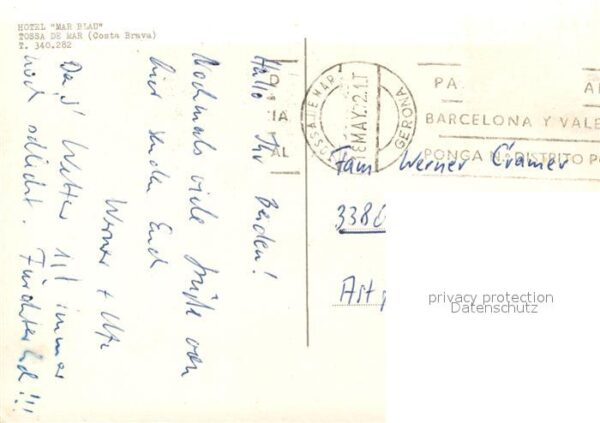 HOTEL "MAR BLAU"
TOSSA DE MAR (Costa Brava)
T. 340.282
Hallo Ihr Beiden!
Nochmals viele Grüße von
hier senden Euch
Werner + Ute
Das Wetter ist immer
noch schlecht. Fürchterlich!!!
TOSSA DE MAR
8 MAY 72
GERONA
PA
BARCELONA Y VALE
PONGA N.º DISTRITO PO
IA
AL
Fam Werner Cramer
3380
privacy protection
Datenschutz